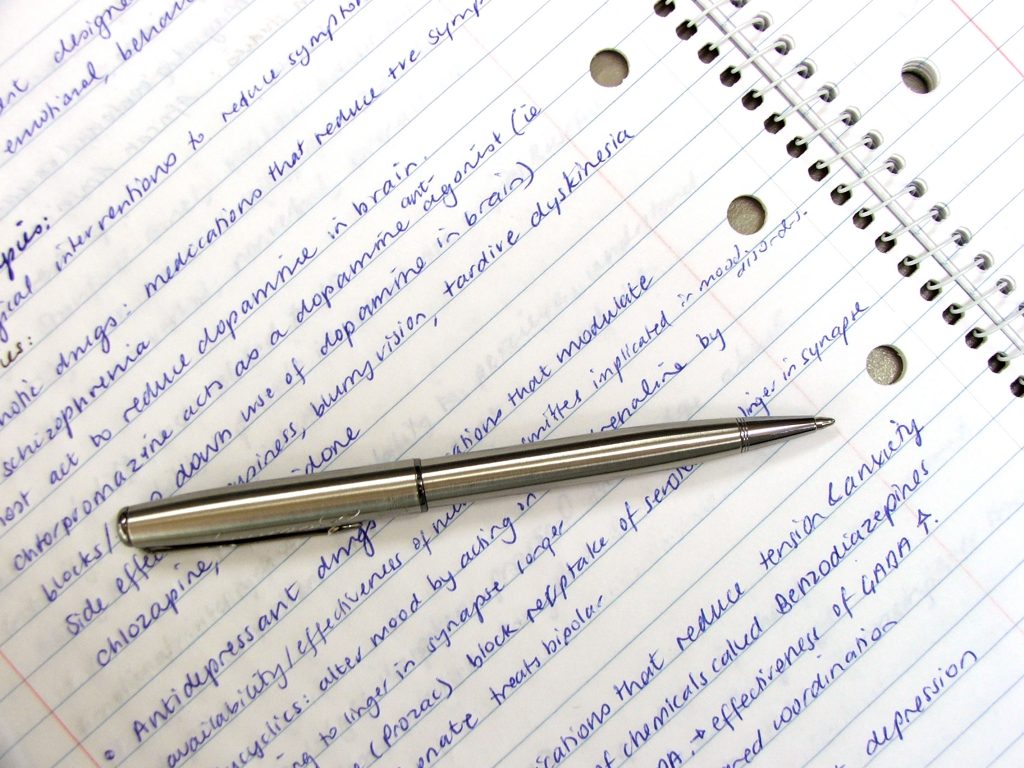 designed
emotional, behav
interventions to reduce symptom
drugs: medications that reduce +ve symp
schizophrenia
act to reduce dopamine in brain.
ant-
chlorpromazine acts as a dopamine agonist (ie
blocks/ down use of dopamine in brain)
side effe blurry vision, tardive dyskinesia
chlozapine, done
• Antidepressant drugs ations that modulate
availability/effectiveness of implicated in mood disorders.
cyclics: alter mood by acting on renaline by
to linger in synapse longer
(Prozac) block reuptake of sero linger in synapse
onate treats bipolar
ications that reduce tension & anxiety
of chemicals called Benzodiazepines
→ effectiveness of GABA ↑.
coordination
depression